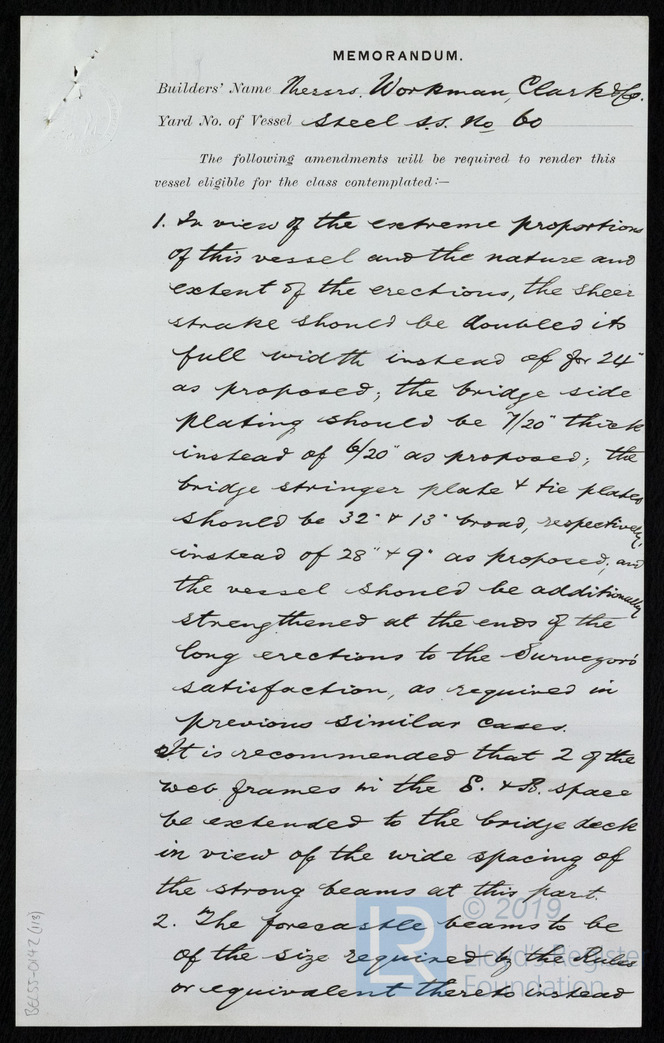 MEMORANDUM.
Builders' Name Messrs. Workman, Clark & Co.
Yard No. of Vessel Steel S.S. No 60
The following amendments will be required to render this
vessel eligible for the class contemplated:—
1. In view of the extreme proportions
of this vessel and the nature and
extent of the erections, the sheer
strake should be doubled its
full width instead of for 24"
as proposed; the bridge side
plating should be 7/20" thick
instead of 6/20" as proposed; the
bridge stringer plate & tie plates
should be 32" & 13" broad, respectively,
instead of 28" & 9" as proposed; and
the vessel should be additionally
strengthened at the ends of the
long erections to the Surveyors'
satisfaction, as required in
previous similar cases.
It is recommended that 2 of the
web frames in the E. & B. space
be extended to the bridge deck
in view of the wide spacing of
the strong beams at this part.
2. The forecastle beams to be
of the size required by the Rules
or equivalent thereto instead
BEL55-0142 (113)
LR
© 2019
Lloyd's Register
Foundation